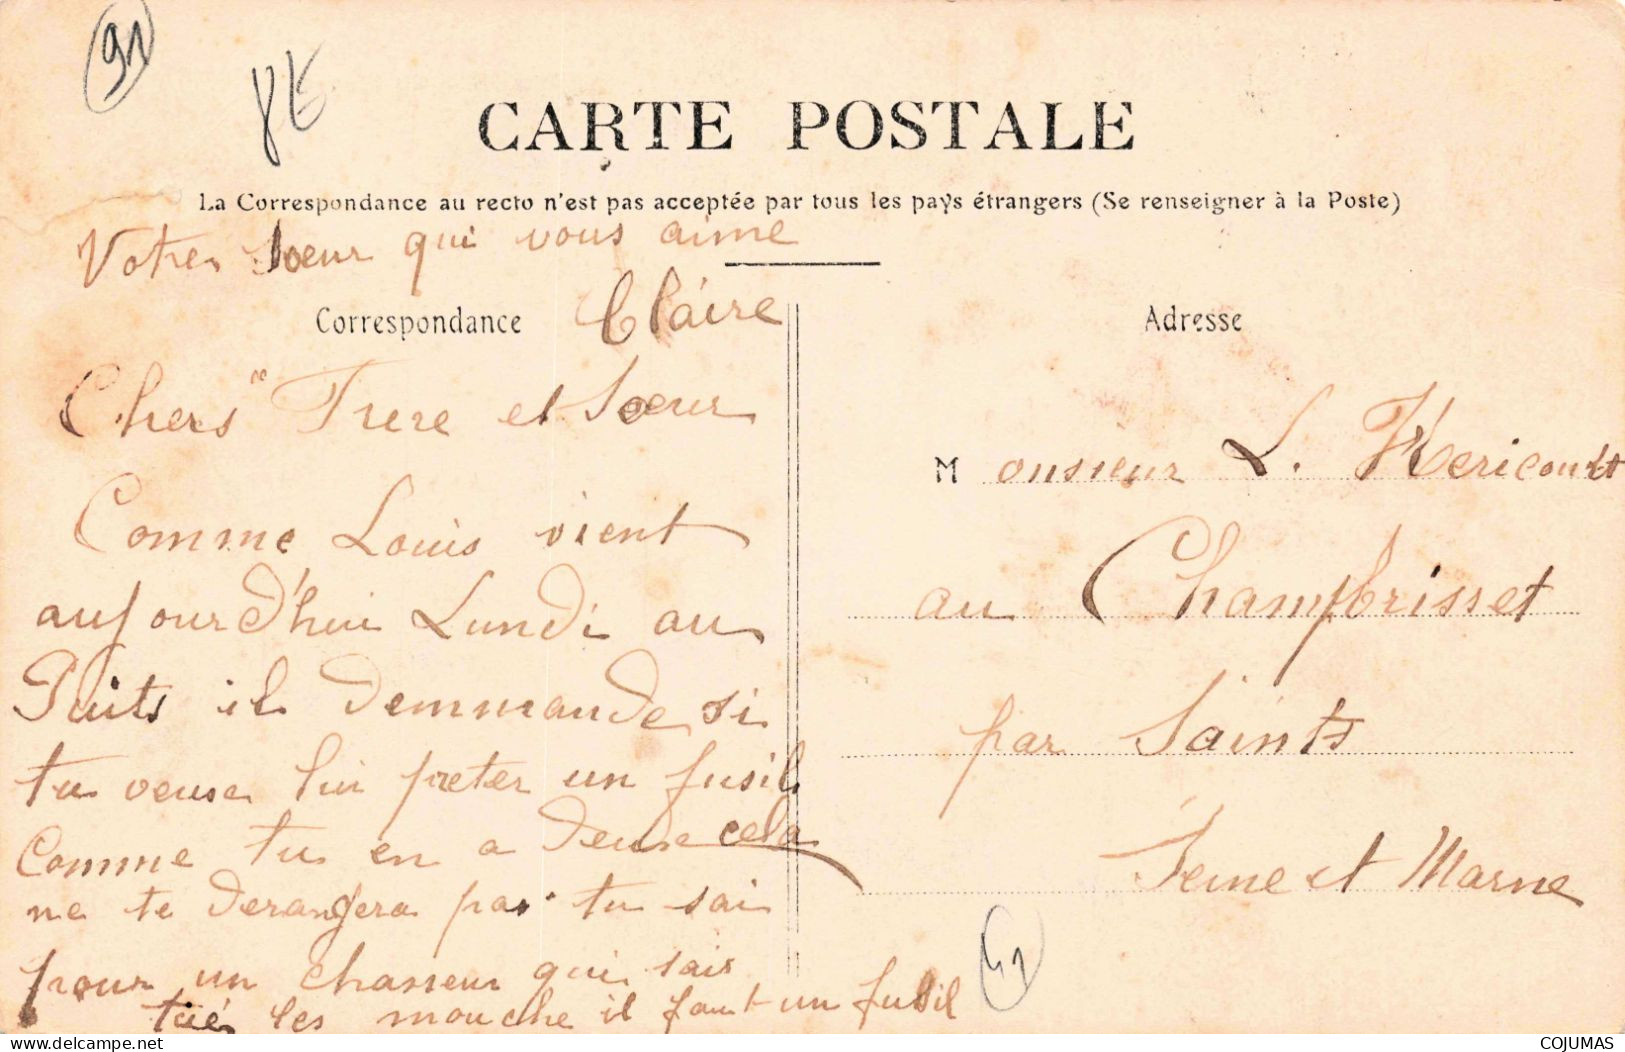 91
CARTE POSTALE
La Correspondance au recto n'est pas acceptée par tous les pays étrangers (Se renseigner à la Poste)
Votre soeur qui vous aime
Claire
Correspondance
Chers Frere et Soeur
Comme Louis vient
aujourd'hui Lundi au
Puits il demmande si
tu veuse lui preter un fusil
comme tu en a deuse cela
ne te derangera pas tu sai
pour un chasseur qui sais
tués les mouche il faut un fusil
Adresse
Monsieur L. Hericourt
au Champbrisset
par Saints
Seine et Marne
delcampe.net
COJUMAS